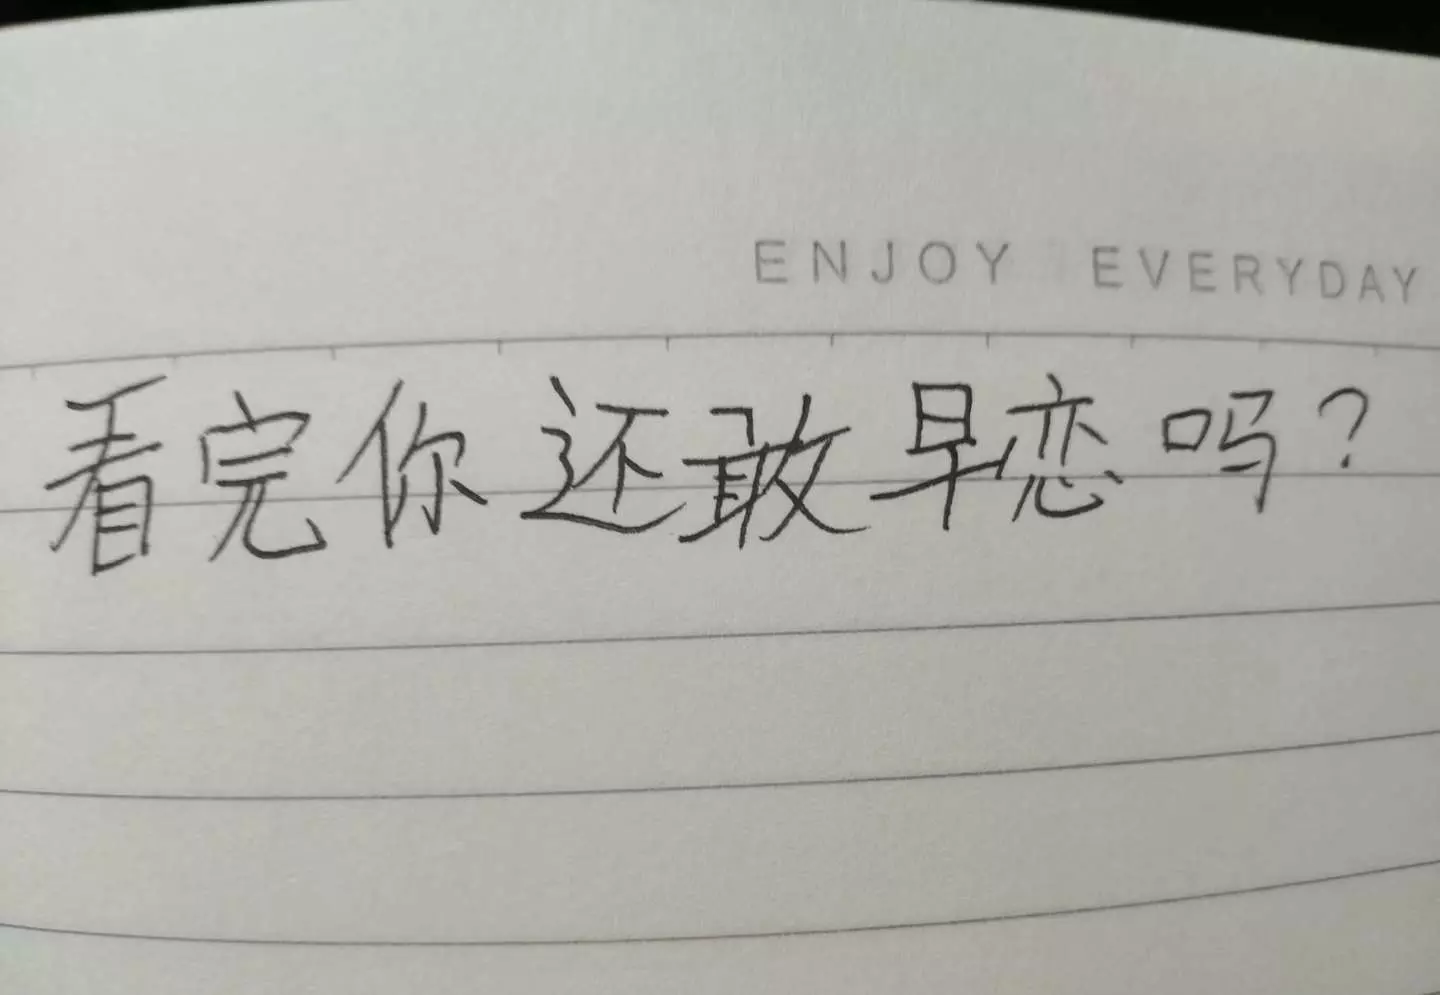 ENJOY EVERYDAY
看完你还敢早恋吗?